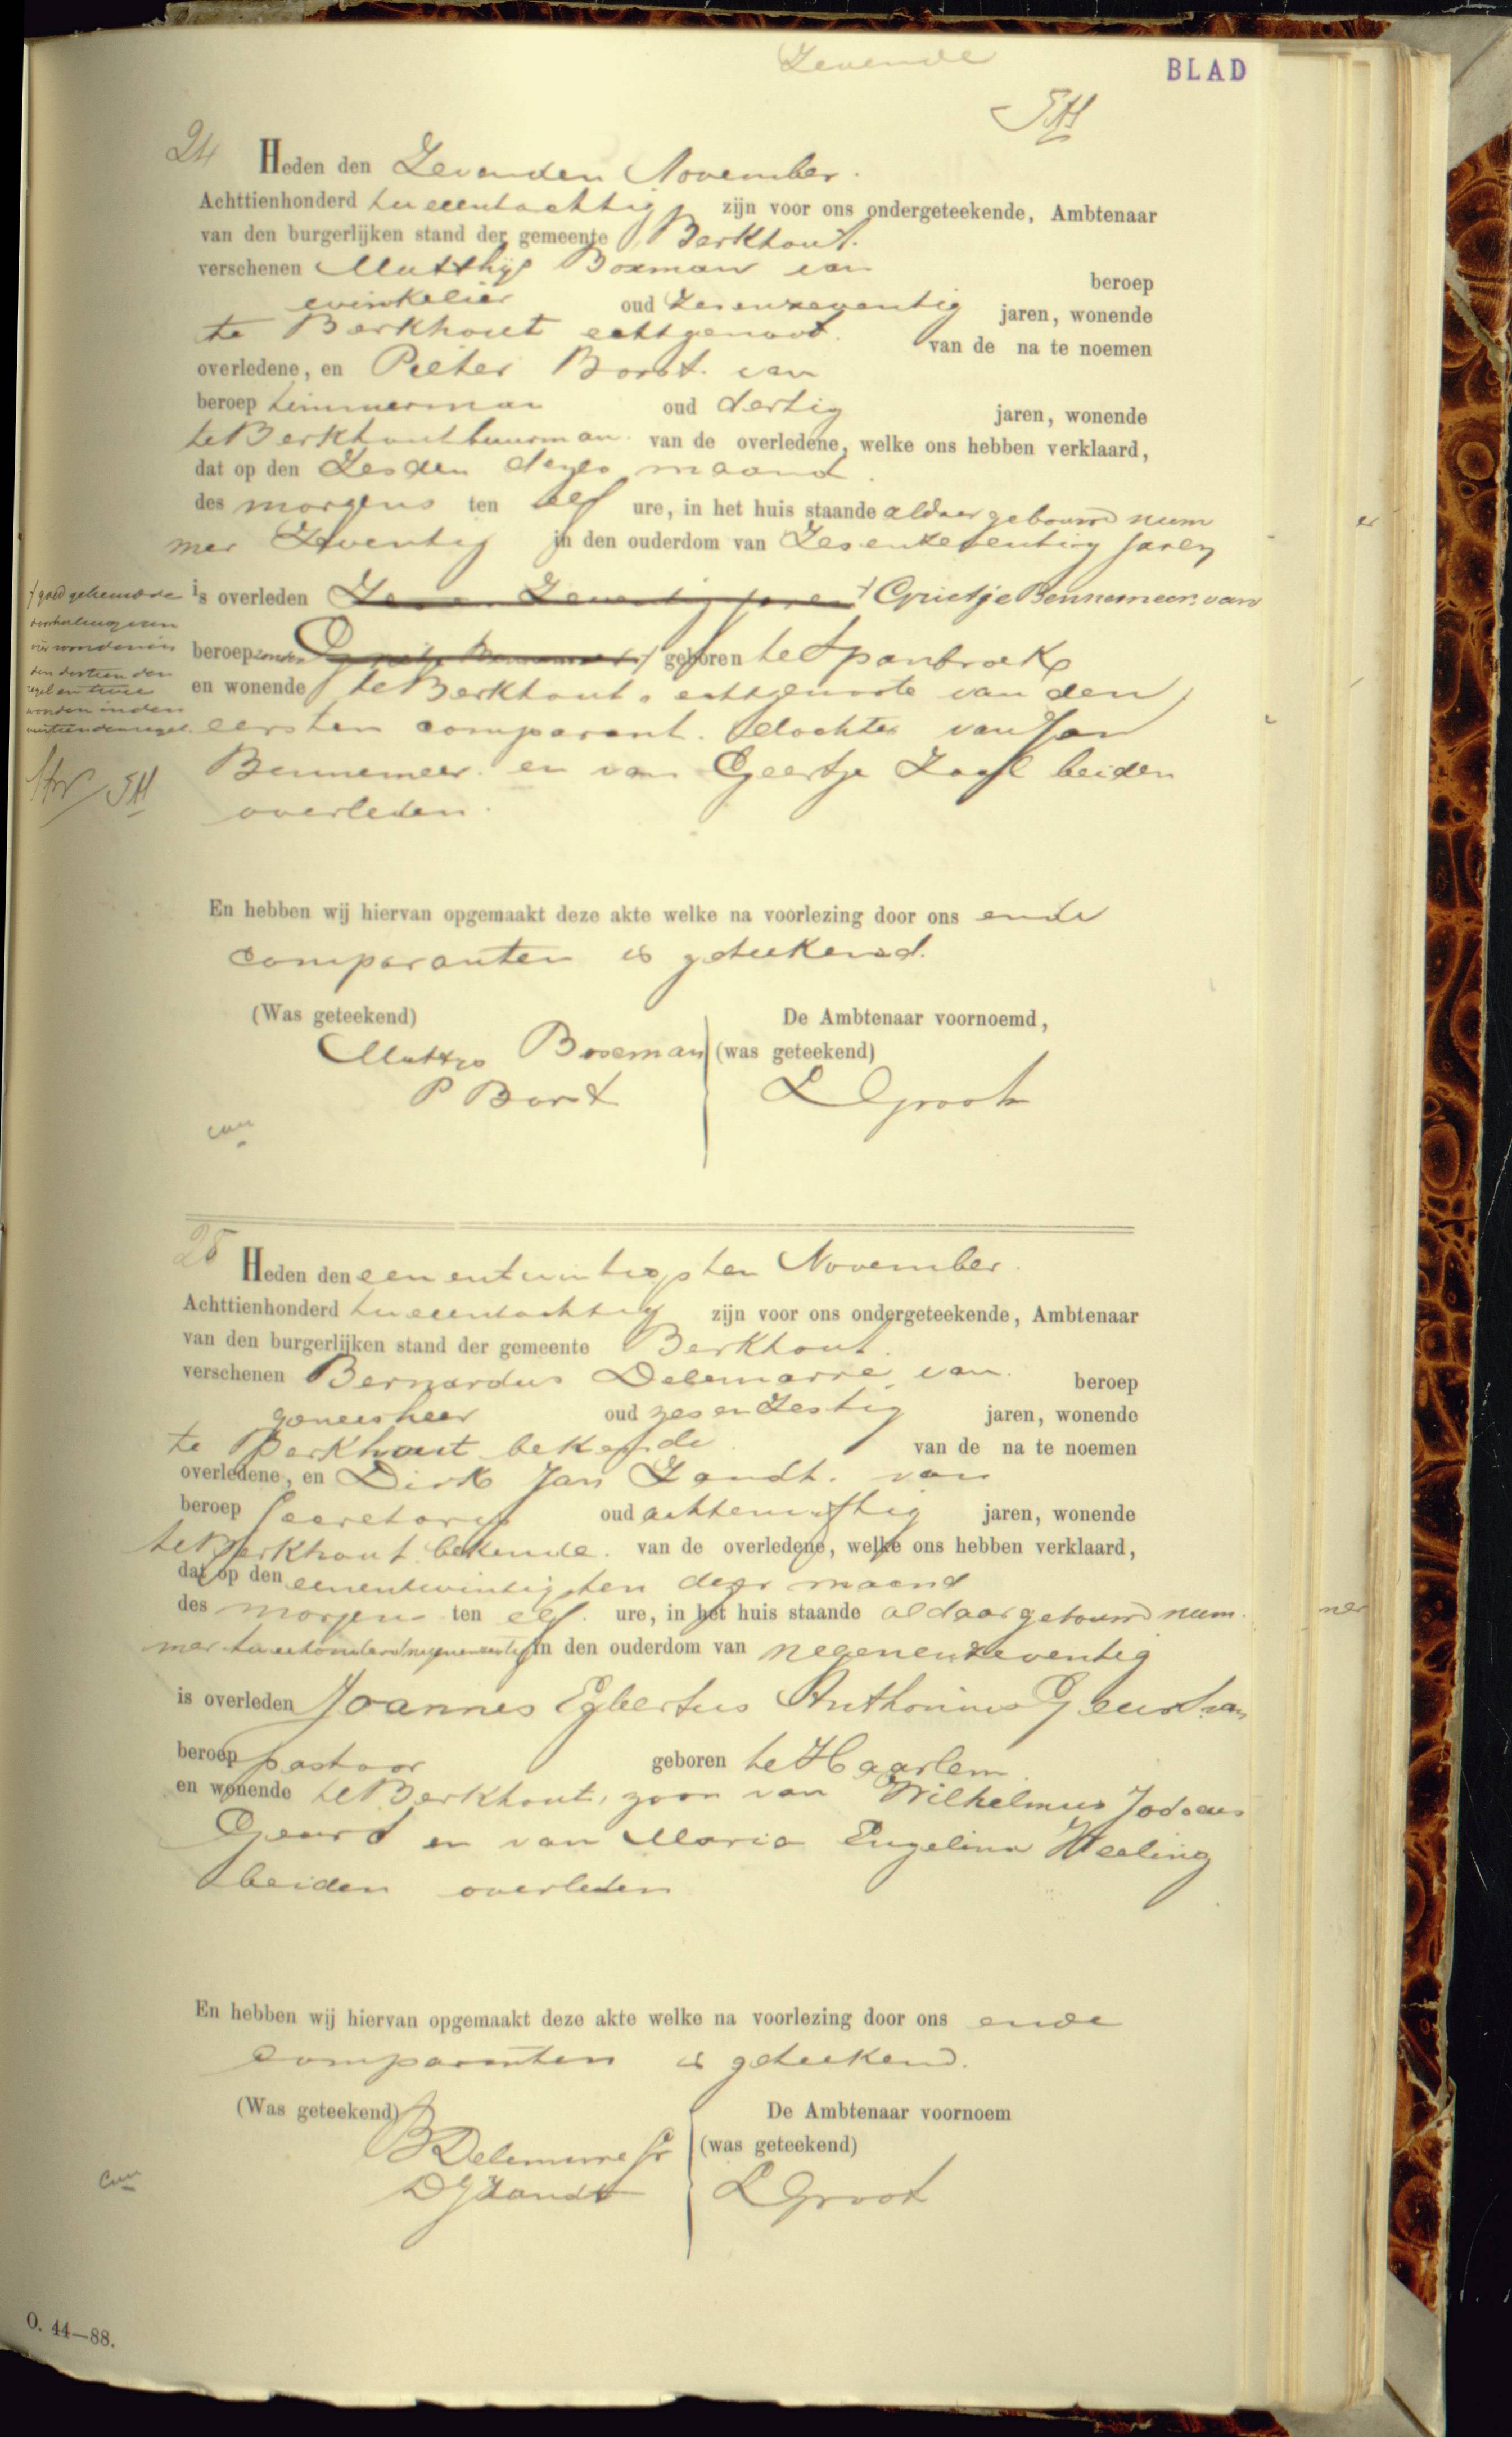 Zevende
BLAD
24 Heden den Zevenden November.
Achttienhonderd tweeentachtig zijn voor ons ondergeteekende, Ambtenaar
van den burgerlijken stand der gemeente Berkhout.
verschenen Matthijs Boxman van beroep
winkelier oud zesenzeventig jaren, wonende
te Berkhout echtgenoot. van de na te noemen
overledene, en Pieter Borst. van
beroep timmerman oud dertig jaren, wonende
te Berkhout buurman. van de overledene, welke ons hebben verklaard,
dat op den Zesden dezes maand.
des morgens ten elf ure, in het huis staande aldaar gebuurd num
mer Zeventig in den ouderdom van Zesenzeventig jaren
is overleden Grietje Bennemeer. van
beroep zonder geboren te Spanbroek
en wonende te Berkhout. echtgenoote van den
eersten comparant. dochter van Jan
Bennemeer. en van Geertje Zaal beiden
overleden.
ƒ goedgekeurd de
doorhaling van
vier woorden in
den dertienden
regel en twee
woorden in den
veertienden regel.
En hebben wij hiervan opgemaakt deze akte welke na voorlezing door ons en de
comparanten is geteekend.
(Was geteekend) De Ambtenaar voornoemd,
Matthijs Boxman (was geteekend)
P Borst L Groot
25 Heden den eenentwintigsten November.
Achttienhonderd tweeentachtig zijn voor ons ondergeteekende, Ambtenaar
van den burgerlijken stand der gemeente Berkhout.
verschenen Bernardus Delemarre, van. beroep
geneesheer oud zesenzestig jaren, wonende
te Berkhout bekende van de na te noemen
overledene, en Dirk Jan Zandt. van
beroep Secretaris oud achtenvijftig jaren, wonende
te Berkhout bekende. van de overledene, welke ons hebben verklaard,
dat op den eenentwintigsten dezer maand
des morgens ten elf. ure, in het huis staande aldaar gebuurd num
mer tweehonderdnegenenzestig in den ouderdom van negenenzeventig
is overleden Joannes Egbertus Anthonius Geurd van
beroep pastoor geboren te Haarlem.
en wonende te Berkhout, zoon van Wilhelmus Jodocus
Geurd en van Maria Engelina Heeling
beiden overleden
En hebben wij hiervan opgemaakt deze akte welke na voorlezing door ons en de
comparanten is geteekend.
(Was geteekend) De Ambtenaar voornoem
B Delemarre Sr (was geteekend)
D J Zandt L Groot
O. 44—88.